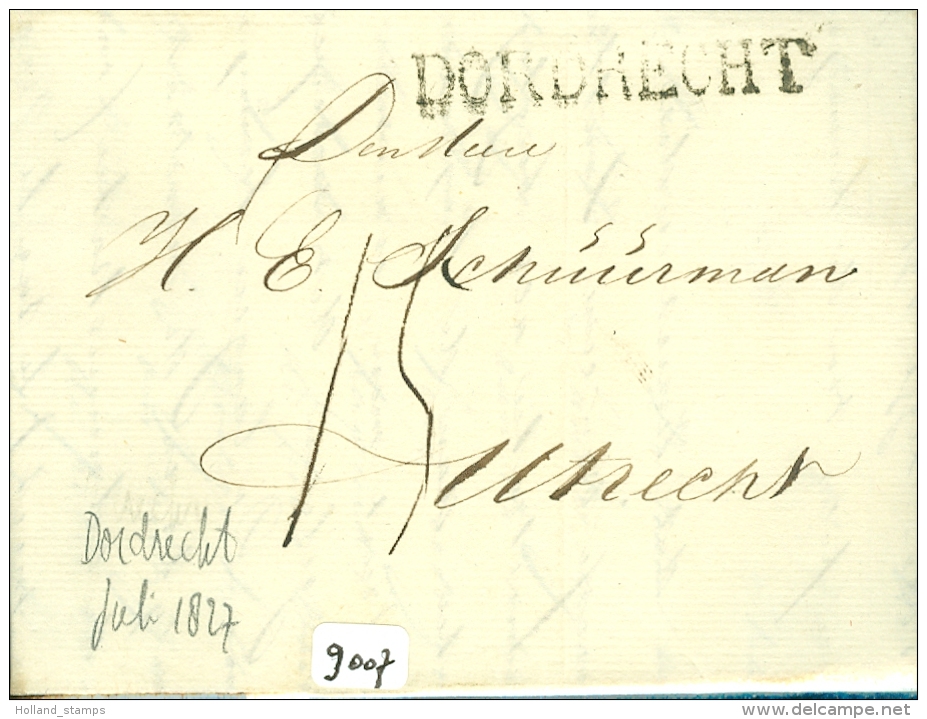 DORDRECHT
Den Heer
H. E. Schüürman
15
Utrecht
Dordrecht
juli 1827
9007
Holland_stamps
www.delcampe.net